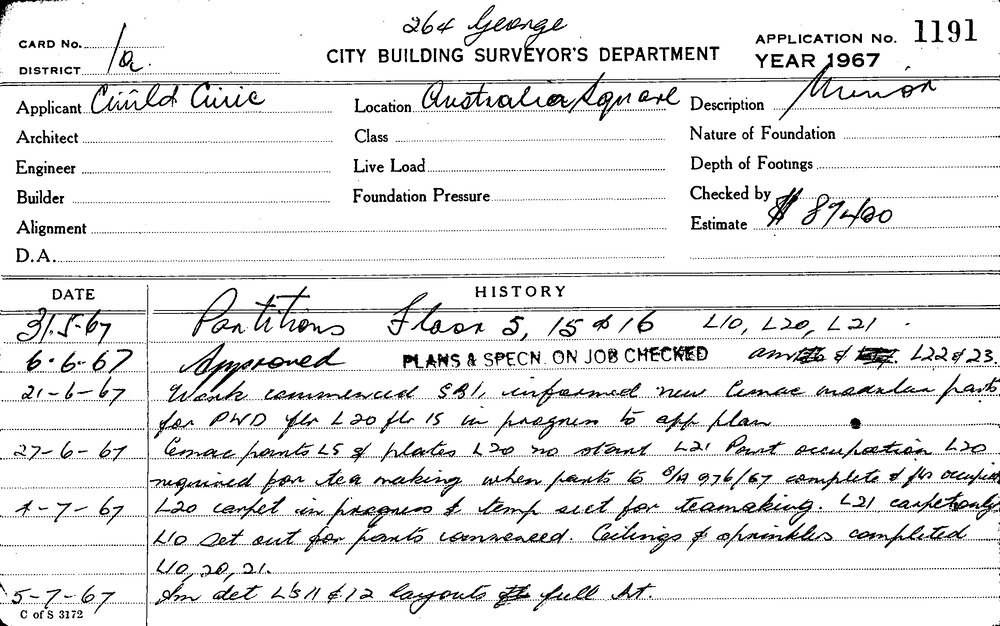 264 George
CARD No. 1a CITY BUILDING SURVEYOR'S DEPARTMENT APPLICATION No. 1191
DISTRICT YEAR 1967
Applicant Civil & Civic Location Australia Square Description Minor
Architect Class Nature of Foundation
Engineer Live Load Depth of Footings
Builder Foundation Pressure Checked by
Alignment Estimate $ 89400
D.A.
DATE HISTORY
31.5-67 Partitions Floor 5, 15 & 16 L10, L20, L21.
6.6.67 Approved PLANS & SPECN. ON JOB CHECKED & L22 & 23.
21-6-67 Work commenced SB1, informed new Cemac modular parts
for PWD flr L20 flr 15 in progress to app plan
27-6-67 Cemac parts L5 & plates L20 no start L21 Part occupation L20
required for tea making when parts to B/A 976/67 complete & flr occupied
4-7-67 L20 carpet in progress & temp sect for teamaking. L21 carpet only
L10 set out for parts commenced. Ceilings & sprinkles completed
L10, 20, 21.
5-7-67 Am det L's 11 & 12 layouts full ht.
C of S 3172